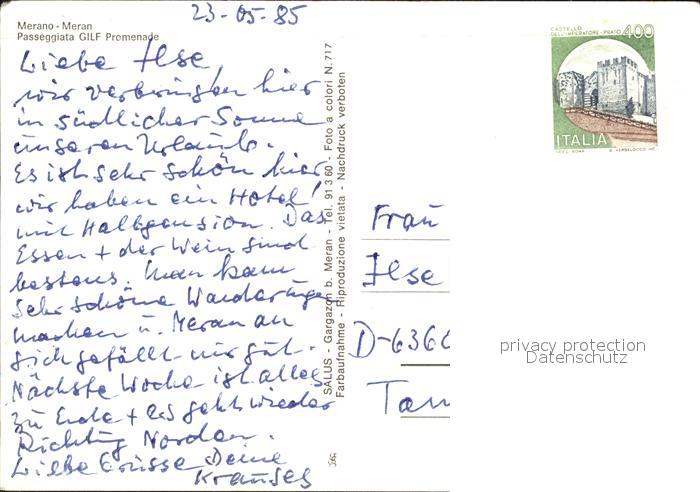 23-05-85
Merano - Meran
Passeggiata GILF Promenade
Liebe Ilse,
wir verbringen hier
in südlicher Sonne
unseren Urlaub.
Es ist sehr schön hier
wir haben ein Hotel
mit Halbpension. Das
Essen + der Wein sind
bestens. Man kann
sehr schöne Wanderungen
machen u. Meran an
sich gefällt mir gut.
Nächste Woche ist alles
zu Ende + es geht wieder
Richtung Norden.
Liebe Grüsse Deine
Krauses
SALUS - Gargazon b. Meran - Tel. 91 3 60 - Foto a colori N. 717
Farbaufnahme - Riproduzione vietata - Nachdruck verboten
CASTELLO
DELL'IMPERATORE - PRATO 400
ITALIA
Frau
Ilse
D-6366
Tau
privacy protection
Datenschutz